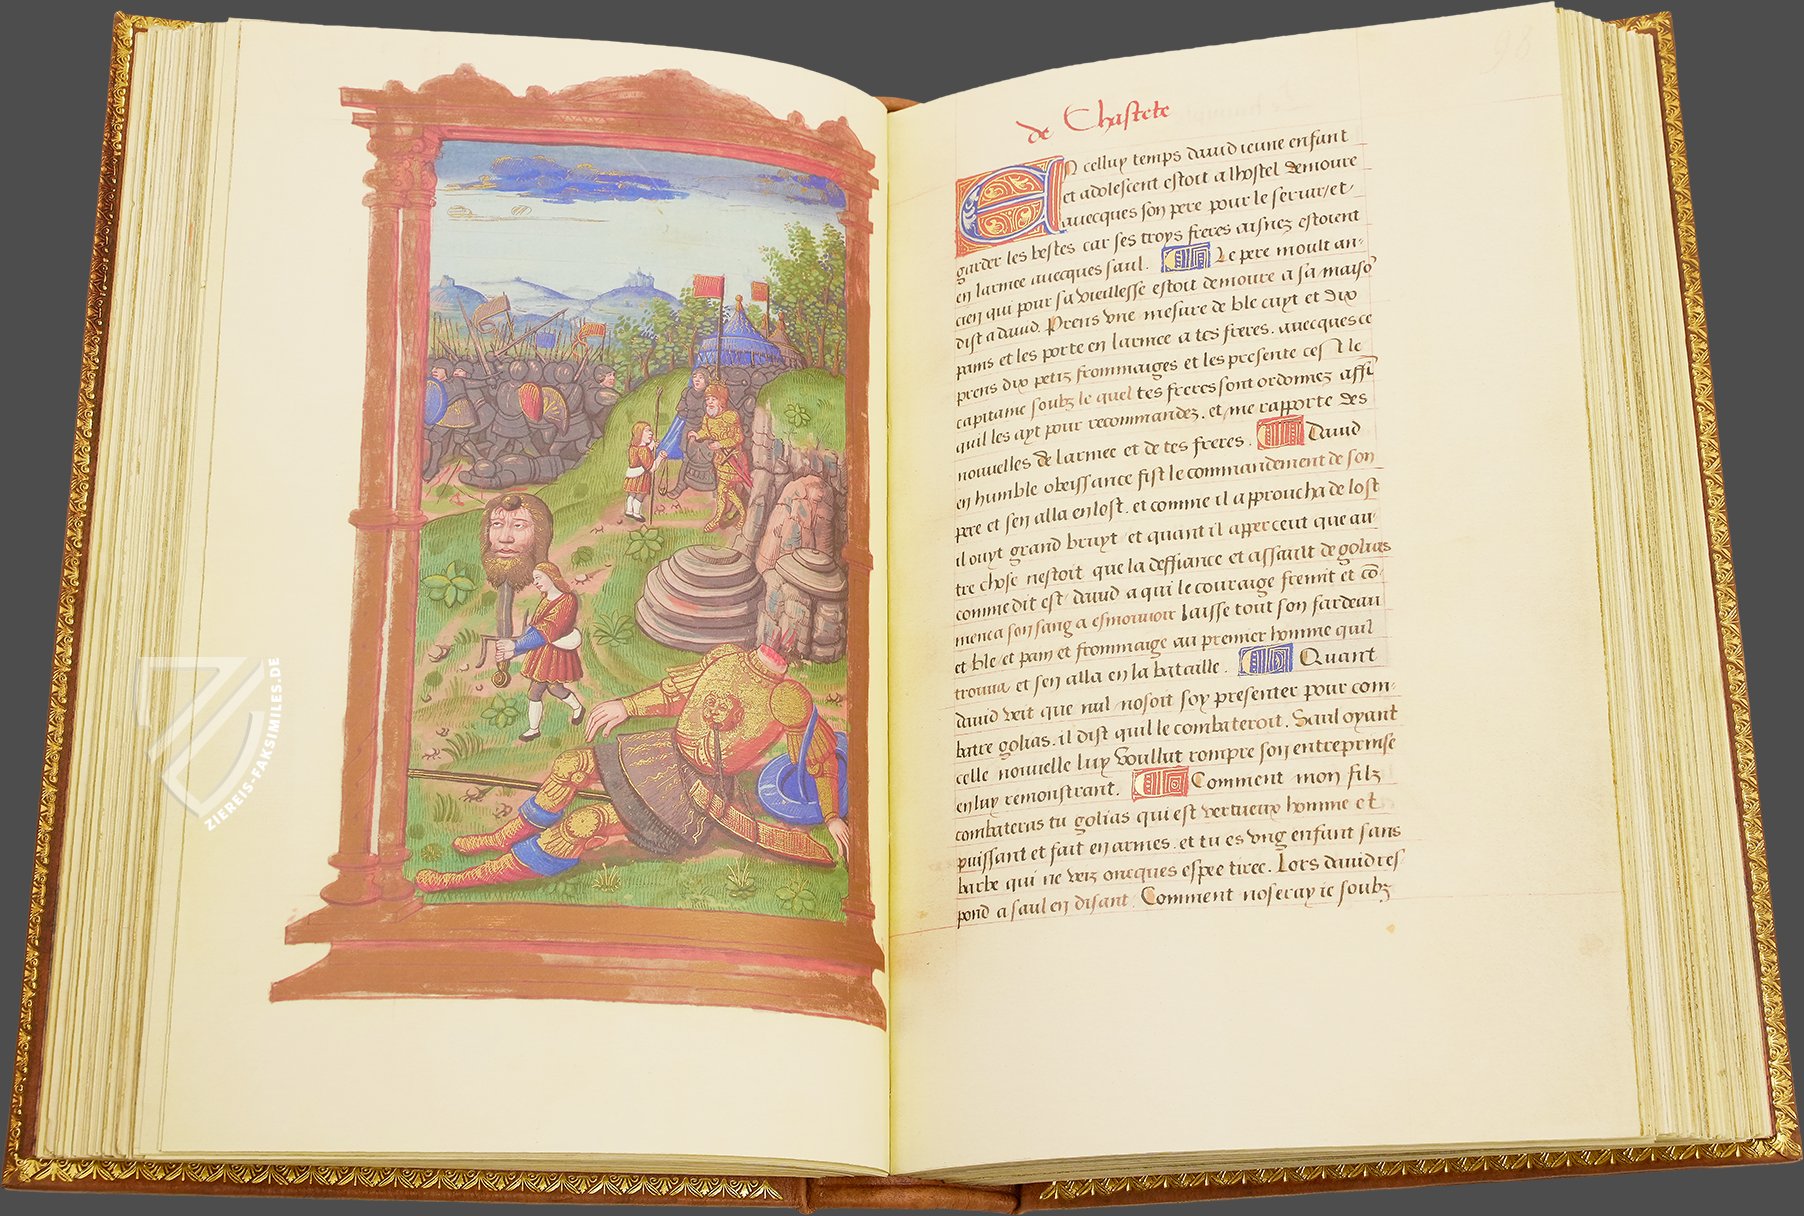 ZIEREIS-FAKSIMILES.DE
96
de Chastete
En celluy temps dauid ieune enfant
et adolescent estoit a lhostel demoure
auecques son pere pour le seruir, et
garder les bestes car ses troys freres aisnez estoient
en larmee auecques saul. Le pere moult an-
cien qui pour sa vieillesse estoit demoure a sa maisõ
dist a dauid. Prens vne mesure de ble cuyt et dix
pains et les porte en larmee a tes freres. auecques ce
prens dix petiz frommaiges et les presente le
capitaine soubz le quel tes freres sont ordonnez affi
quil les ayt pour recommandez. et me rapporte des
nouuelles de larmee et de tes freres. Dauid
en humble obeissance fist le commandement de son
pere et sen alla en lost. et comme il approucha de lost
il ouyt grand bruyt et quant il apperceut que au-
tre chose nestoit que la deffiance et assault de golias
comme dit est dauid a qui le couraige fremit et cõ-
menca son sang a esmouuoir laisse tout son fardeau
et ble et pain et frommaige au premier homme quil
trouua et sen alla en la bataille. Quant
dauid veit que nul nosoit soy presenter pour com-
batre golias. il dist quil le combateroit. Saul oyant
celle nouuelle luy voullut rompre son entreprinse
en luy remonstrant. Comment mon filz
combateras tu golias qui est vertueux homme et
puissant et fait en armes. et tu es vng enfant sans
barbe qui ne veiz oncques espee tiree. Lors dauid res-
pond a saul en disant. Comment noseray ie soubz